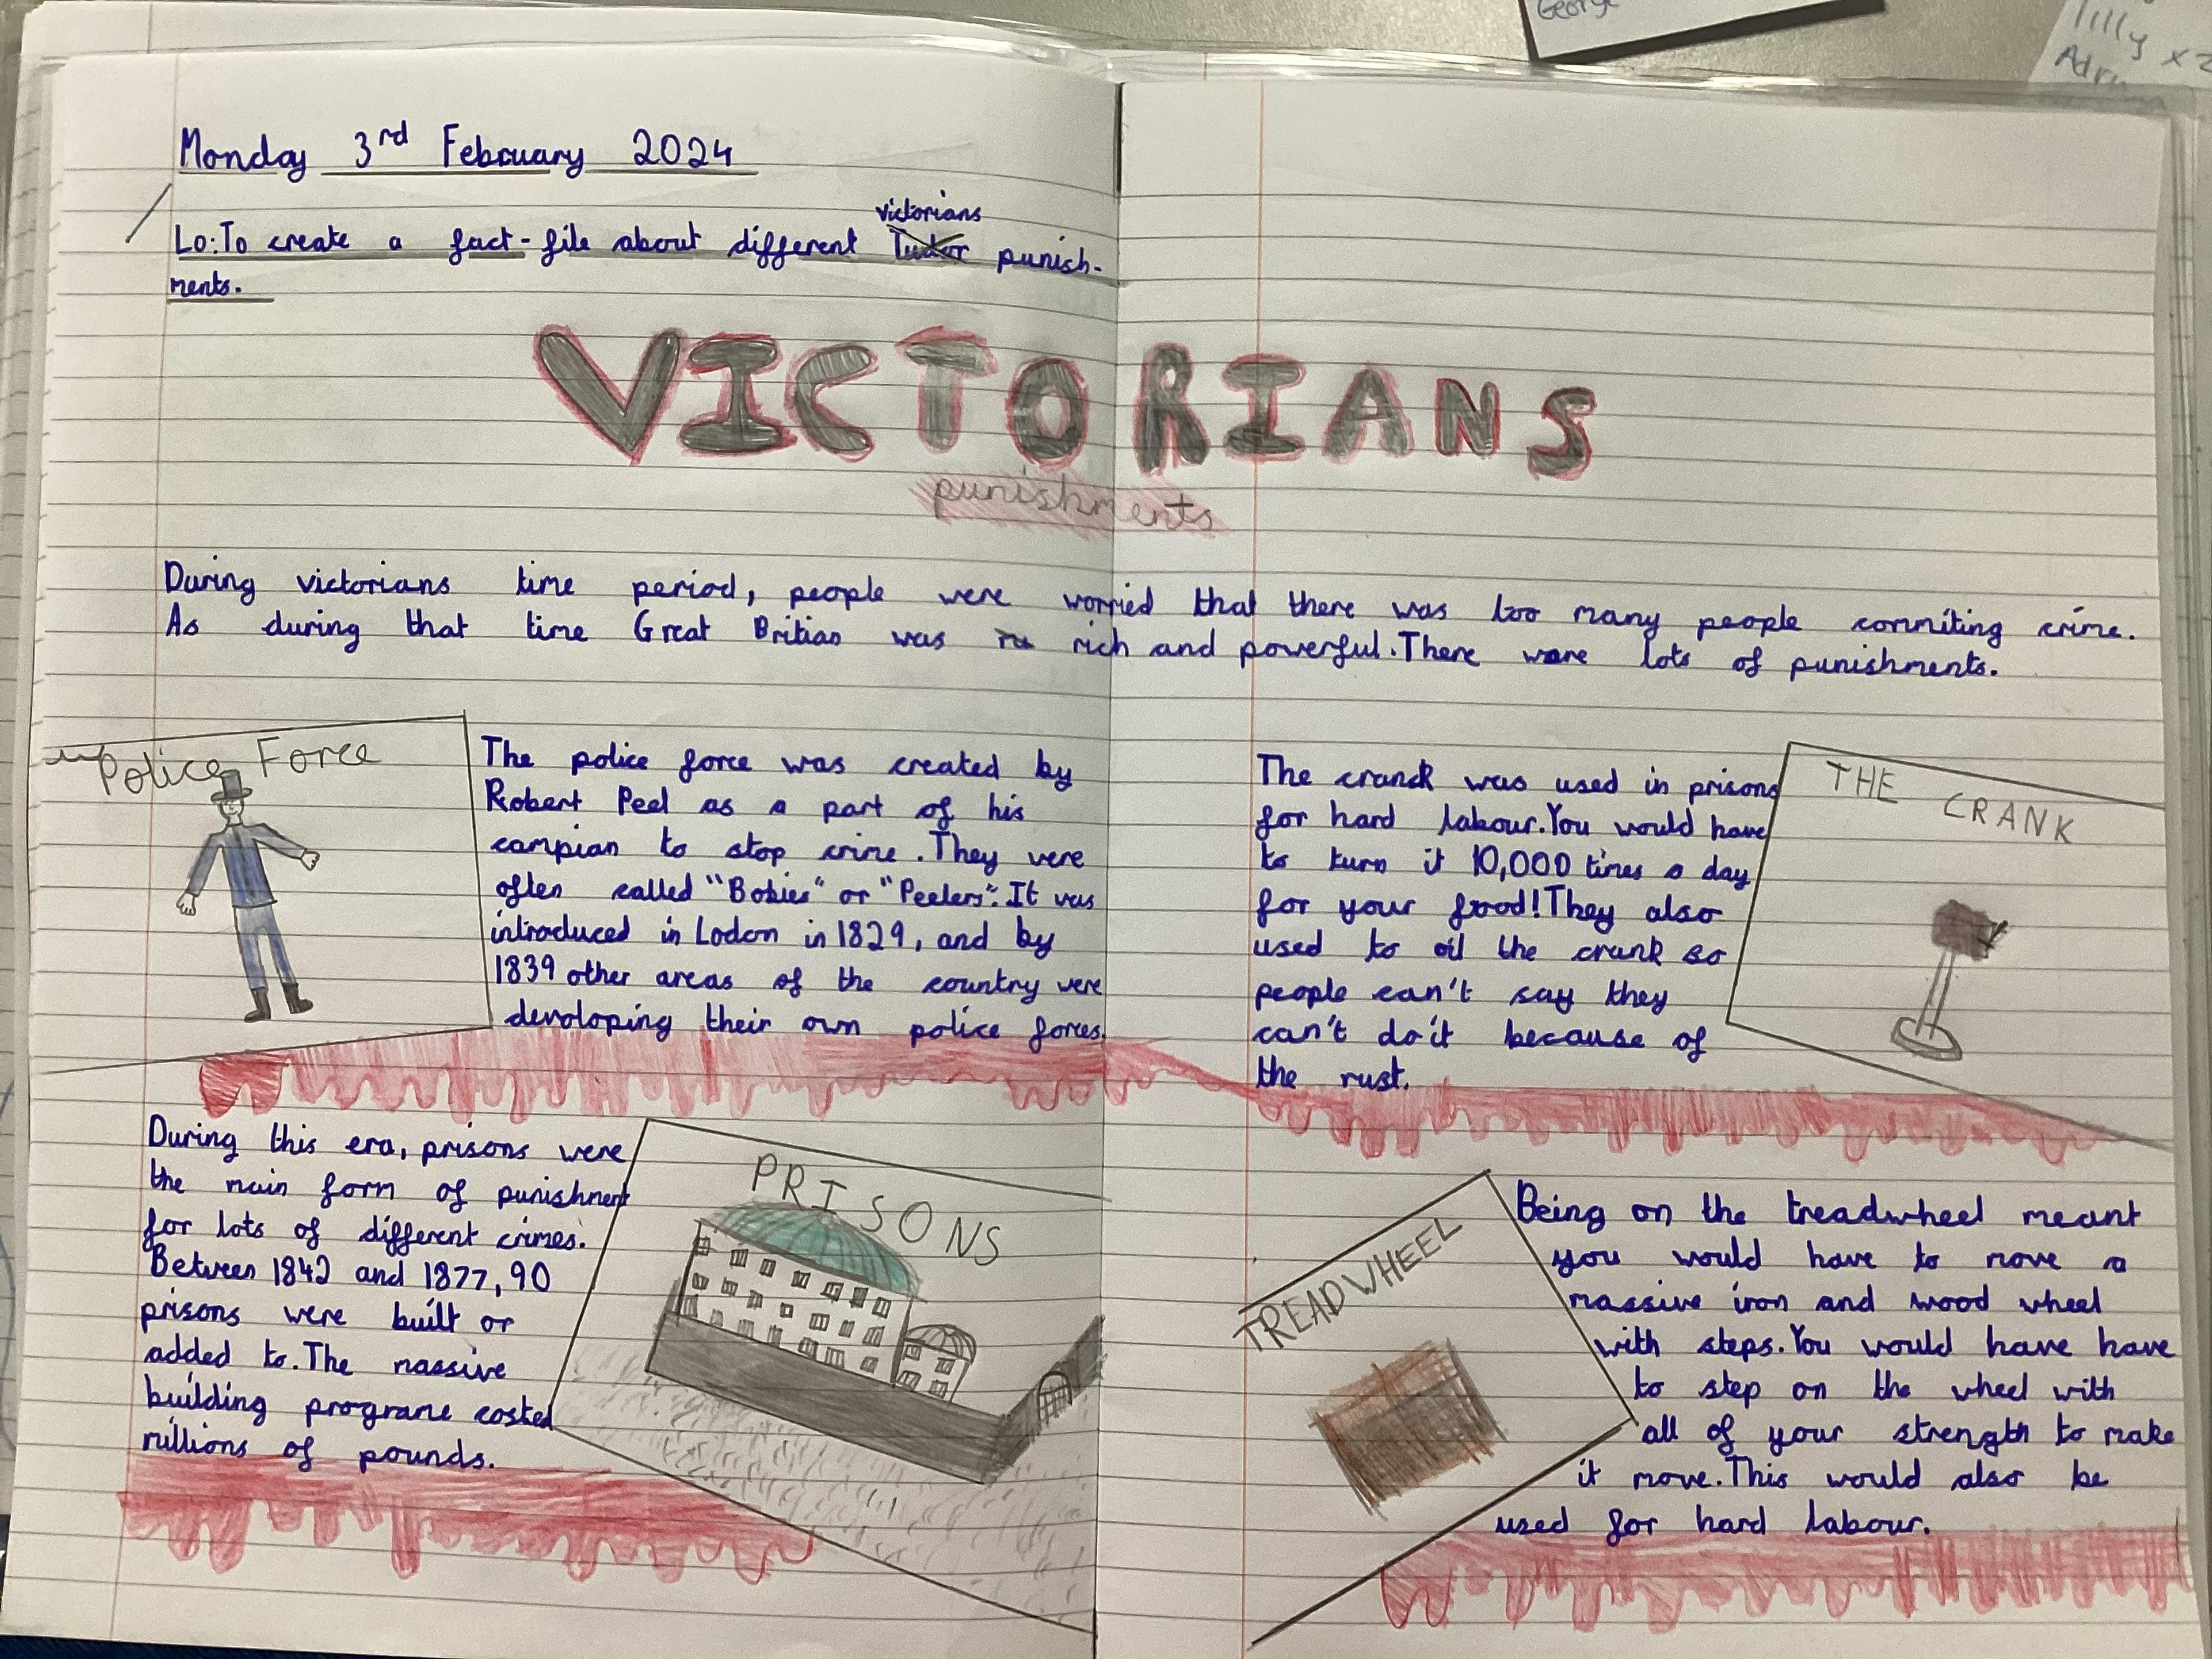 George
Lilly x2
Monday 3rd February 2024
victorians
Lo: To create a fact-file about different Tudor punish-
ments.
VICTORIANS
punishments
During victorians time period, people were worried that there was too many people commiting crime.
As during that time Great Britian was rich and powerful. There were lots of punishments.
Police Force
The police force was created by
Robert Peel as a part of his
campian to stop crime. They were
often called "Bobies" or "Peelers". It was
introduced in Lodon in 1829, and by
1839 other areas of the country were
devoloping their own police forces.
The cranck was used in prisons
for hard labour. You would have
to turn it 10,000 times a day
for your food! They also
used to oil the crank so
people can't say they
can't do it because of
the rust.
THE CRANK
During this era, prisons were
the main form of punishment
for lots of different crimes.
Between 1842 and 1877, 90
prisons were built or
added to. The massive
building programe costed
millions of pounds.
PRISONS
TREADWHEEL
Being on the treadwheel meant
you would have to move a
massive iron and wood wheel
with steps. You would have have
to step on the wheel with
all of your strength to make
it move. This would also be
used for hard labour.